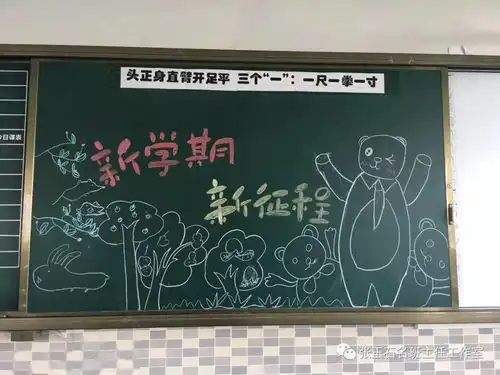 头正身直臂开足平 三个“一”：一尺一拳一寸
新学期
新征程
今日课表
张玉石名班主任工作室